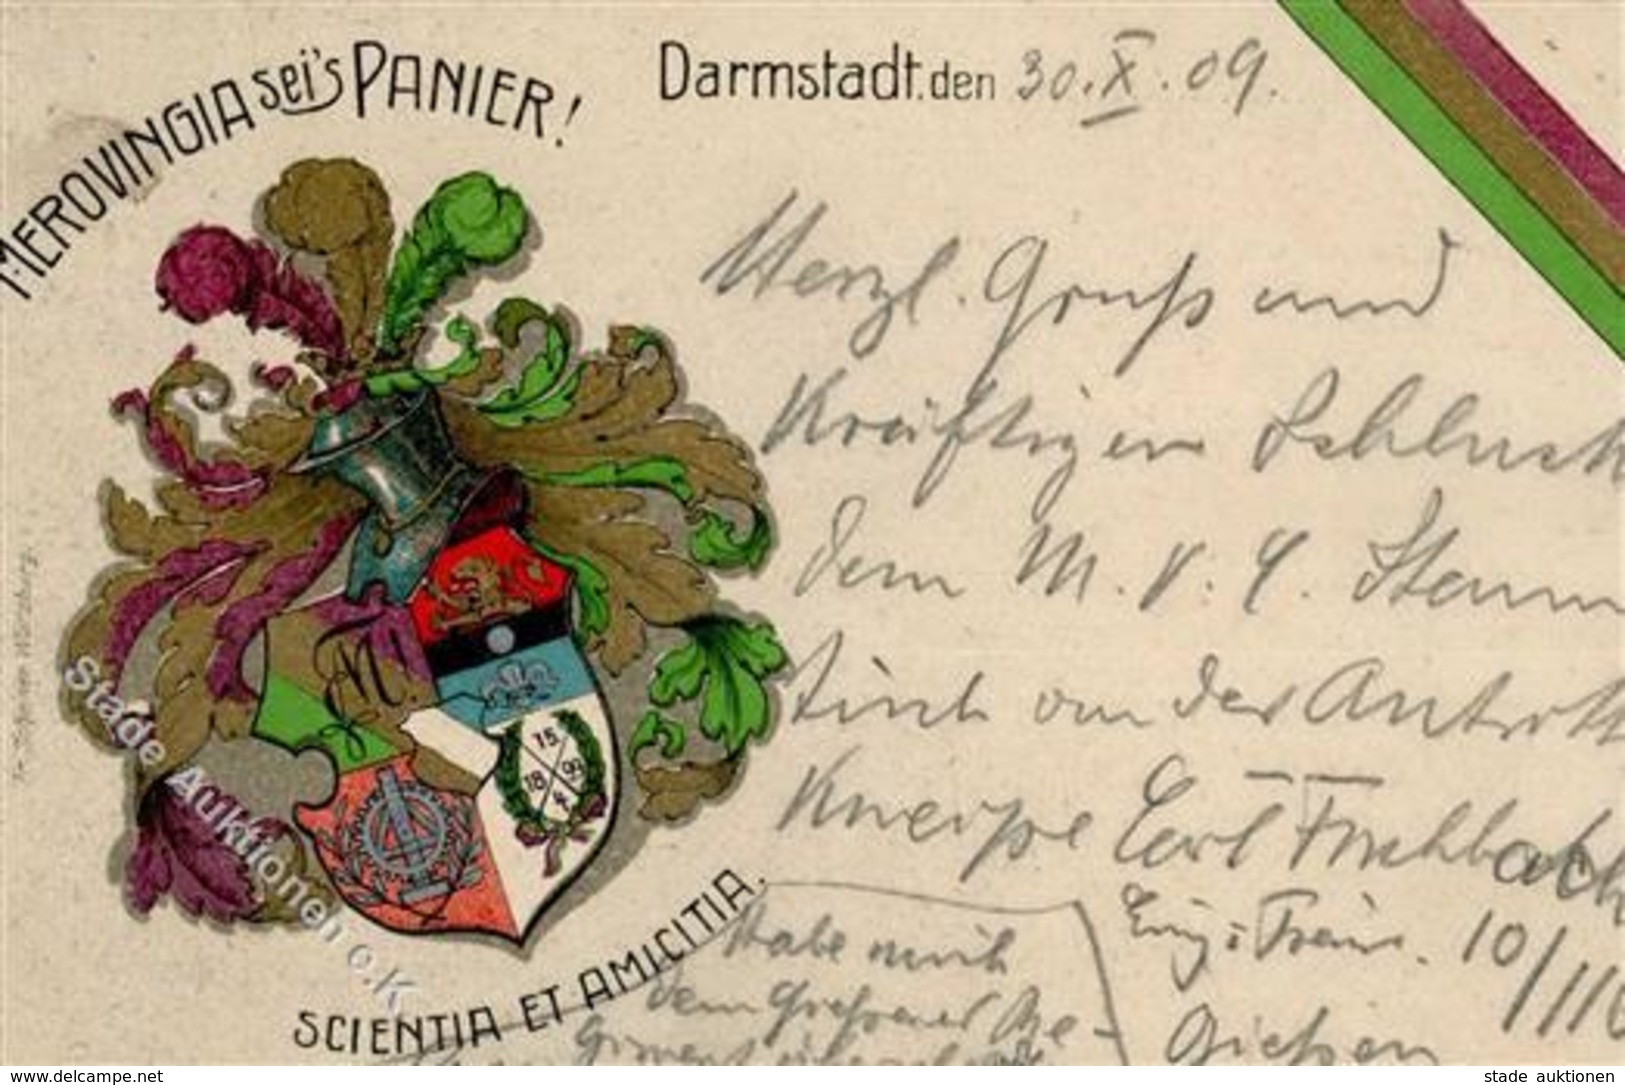 MEROVINGIA sei's PANIER!
Darmstadt, den 30. X. 09.
Herzl. Gruß und
Kräftigen Schluck
dem M. V. C. Stamm
tisch von der Antritts
Kneipe Carl
10/116
Gießen
Habe mich
dem Gießener Re-
giment
M!
15.
18 99
4.
SCIENTIA ET AMICITIA.
Stade Auktionen o.K
www.delcampe.net
stade auktionen